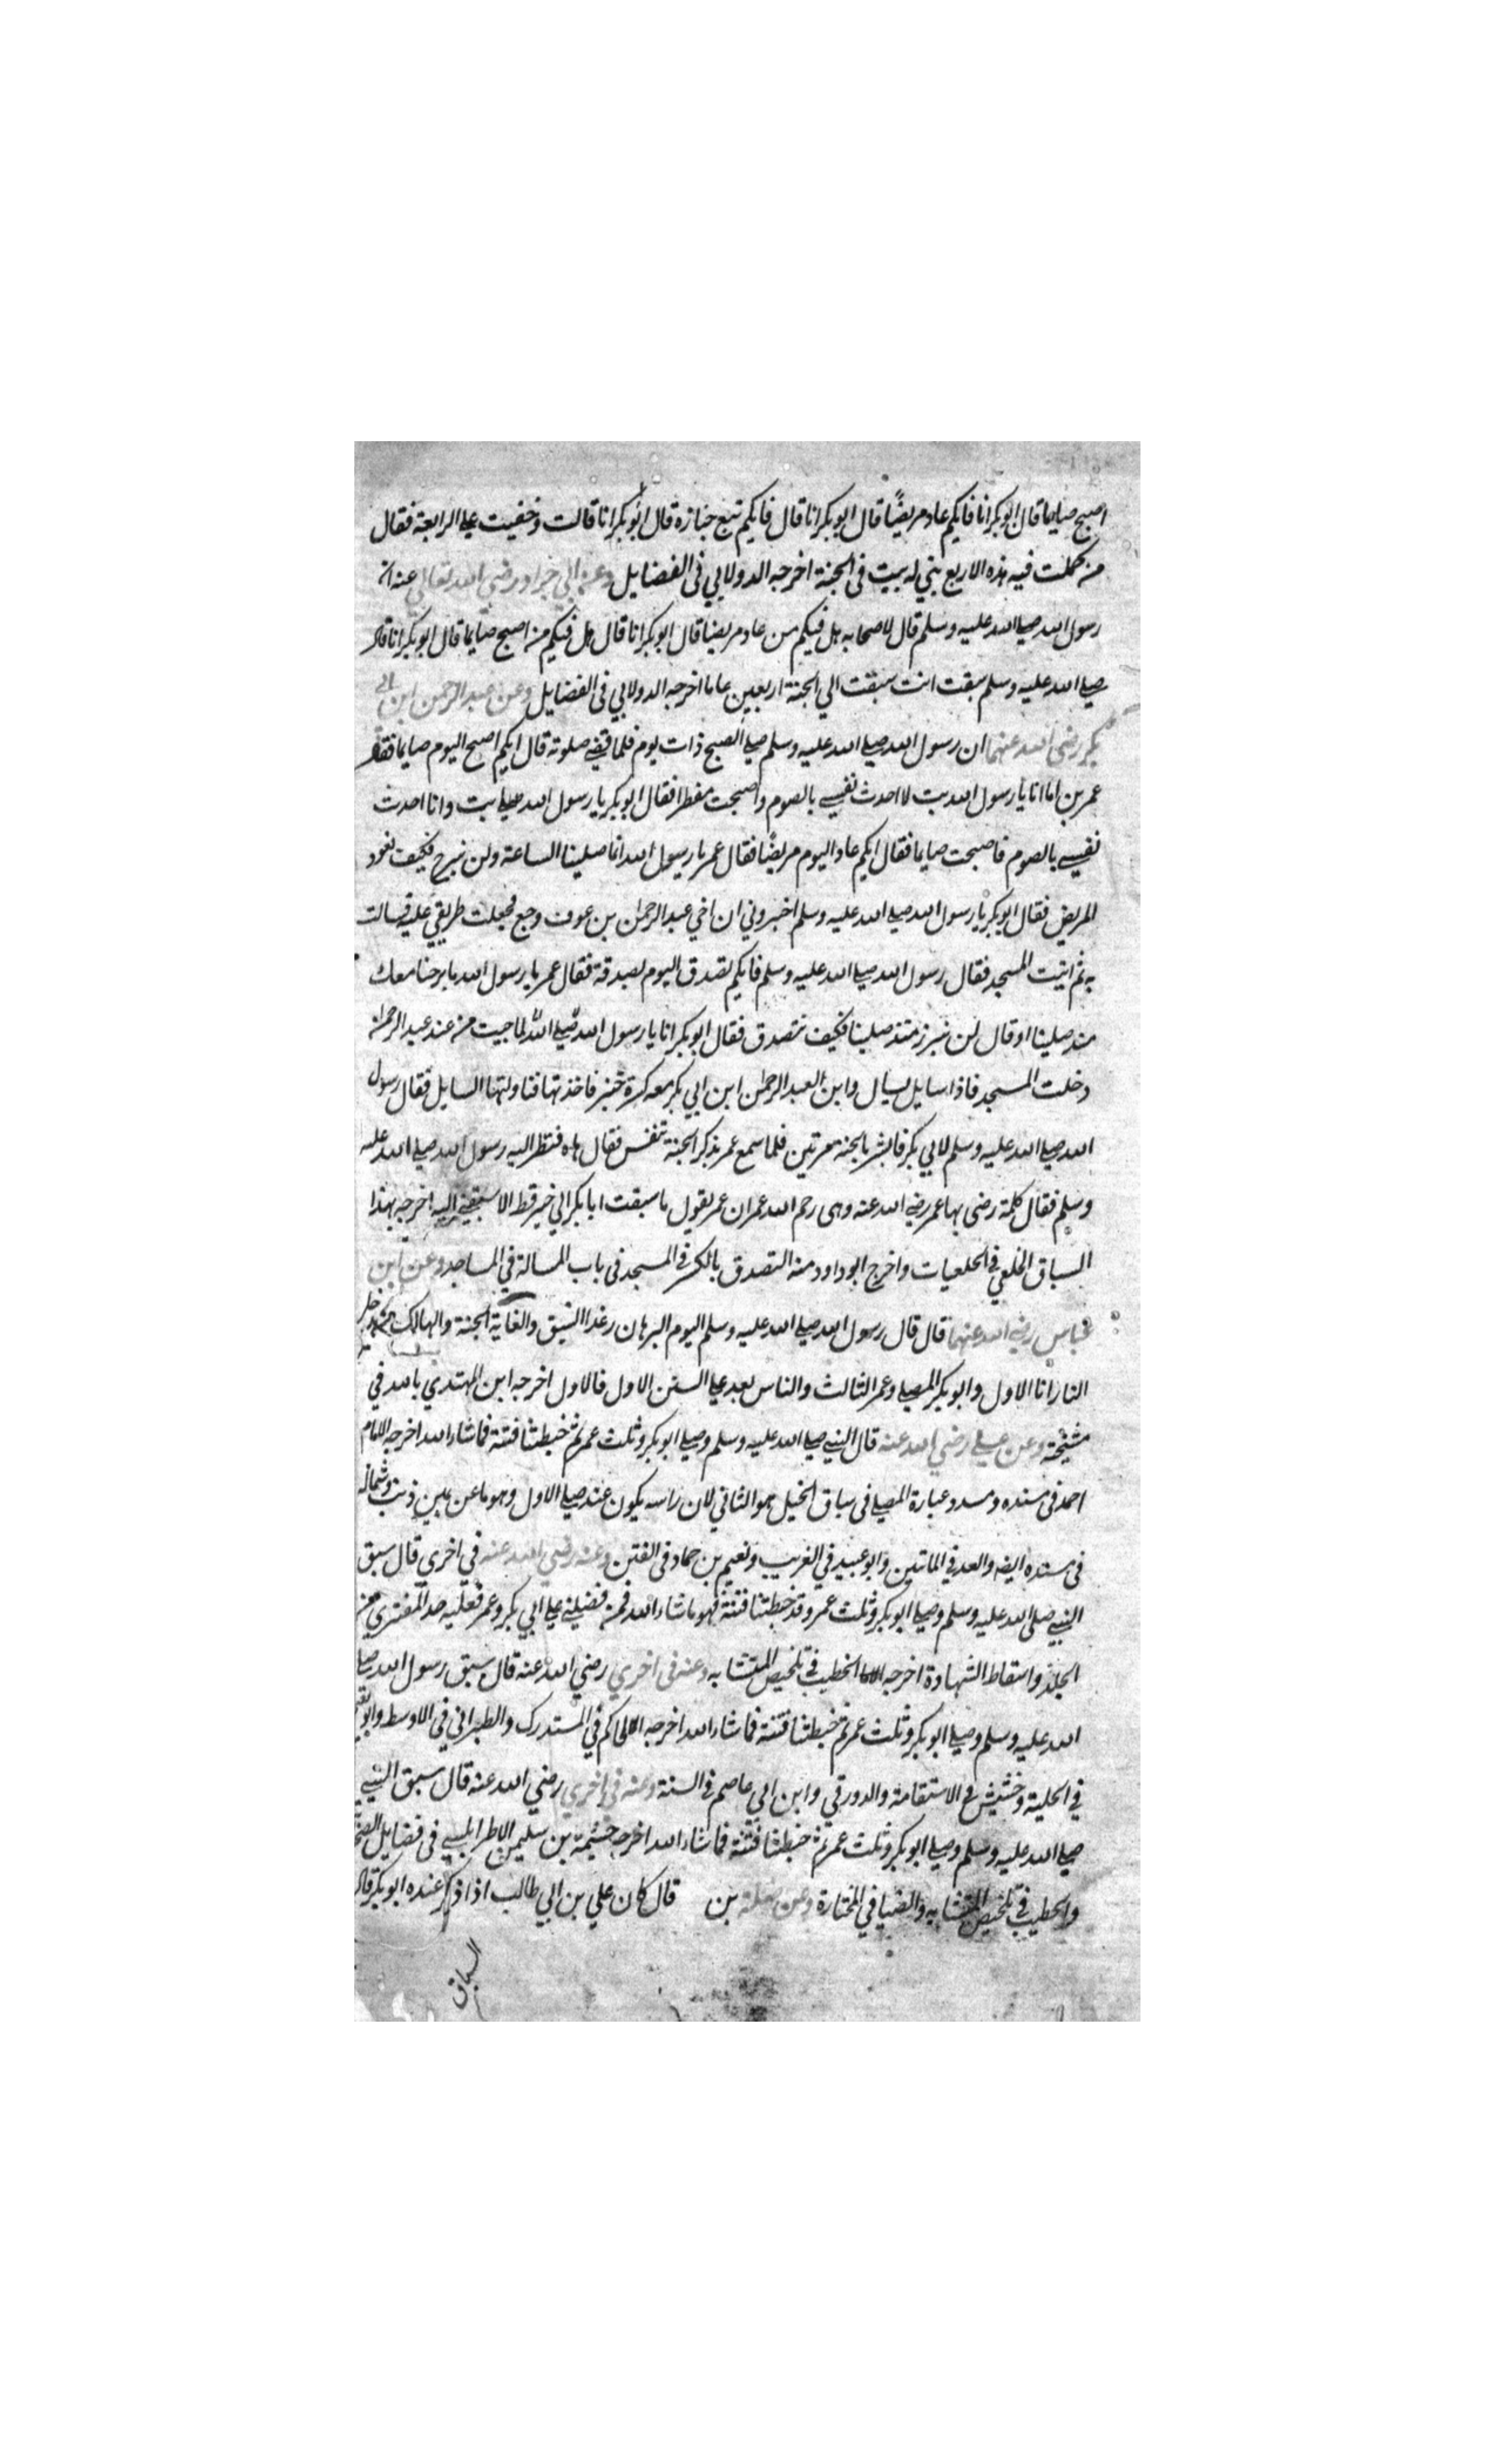 اصبح صايما قال ابو بكر انا فايكم عاد مريضًا قال ابو بكر انا قال فايكم تبع جنازه قال ابو بكر انا قالت وخفيت علي الرابعة فقال
من كملت فيه هذه الاربع بني له بيت في الجنة اخرجه الدولابي في الفضايل وعن ابي جراد رضي الله تعالي عنه ان
رسول الله صلي الله عليه وسلم قال لاصحابه هل فيكم من عاد مريضا قال ابو بكر انا قال هل فيكم من اصبح صايما قال ابو بكر انا قال
صلي الله عليه وسلم سبقت انت سبقت الي الجنة اربعين عاما اخرجه الدولابي في الفضايل وعن عبد الرحمن ابن ابي
بكر رضي الله عنهما ان رسول الله صلي الله عليه وسلم صلي الصبح ذات يوم فلما قضي صلوته قال ايكم اصبح اليوم صايما فقال
عمر بن اما انا يا رسول الله بت لا احدث نفسي بالصوم واصبحت مفطرا فقال ابو بكر يا رسول الله بت وانا احدث
نفسي بالصوم فاصبحت صايما فقال ايكم عاد اليوم مريضًا فقال عمر يا رسول الله انا صلينا الساعة ولن نبرح فكيف نعود
المريض فقال ابو بكر يا رسول الله صلي الله عليه وسلم اخبروني ان اخي عبد الرحمن بن عوف وجع فجعلت طريقي عليه فسالت
به ثم اتيت المسجد فقال رسول الله صلي الله عليه وسلم فايكم تصدق اليوم بصدقة فقال عمر يا رسول الله ما برحنا معك
منذ صلينا او قال لن نبرز منذ صلينا فكيف نتصدق فقال ابو بكر انا يا رسول الله صلي الله لما جيت من عند عبد الرحمن
دخلت المسجد فاذا سايل يسال وابن العبد الرحمن ابن ابي بكر معه كسرة خبز فاخذتها فناولتها السايل فقال رسول
الله صلي الله عليه وسلم لابي بكر فابشر بالجنة مرتين فلما سمع عمر بذكر الجنة تنفس فقال هاه فنظر اليه رسول الله صلي الله عليه
وسلم فقال كلمة رضي بها عمر رضي الله عنه وهي رحم الله عمر ان عمر يقول ما سبقت ابا بكر الي خير قط الا سبقني اليه اخرجه بهذا
السياق الخلعي في الخلعيات واخرج ابو داود منه التصدق بالكسر في المسجد في باب المسالة في المساجد وعن ابن
عباس رضي الله عنهما قال قال رسول الله صلي الله عليه وسلم اليوم الرهان وغدا السبق والغاية الجنة والهالك من دخل
النار انا الاول وابو بكر المصلي وعمر الثالث والناس بعد علي السنن الاول فالاول اخرجه ابن المهتدي بالله في
مشيخته وعن علي رضي الله عنه قال النبي صلي الله عليه وسلم وصلي ابو بكر وثلث عمر ثم خبطتنا فتنة فما شاء الله اخرجه الامام
احمد في مسنده ومسدد وعبارة المصلي في سباق الخيل هو الثاني لان راسه يكون عند صلي الاول وهو ما عن يمين ذنب وشماله
في مسنده ايضه والعد في الماتين وابو عبيد في الغريب ونعيم بن حماد في الفتن وعنه رضي الله عنه في اخري قال سبق
النبي صلي الله عليه وسلم وصلي ابو بكر وثلث عمر وقد خبطتنا فتنة فهو ما شاء الله فمن فضلني علي ابي بكر وعمر فعليه حد المفتري من
الجلد واسقاط الشهادة اخرجه الخطيب في تلخيص المتشابه وعنه في اخري رضي الله عنه قال سبق رسول الله صلي
الله عليه وسلم وصلي ابو بكر وثلث عمر ثم خبطتنا فتنة فما شاء الله اخرجه الحاكم في المستدرك والطبراني في الاوسط وابو نعيم
في الحلية وخشيش في الاستقامة والدورقي وابن ابي عاصم في السنة وعنه في اخري رضي الله عنه قال سبق النبي
صلي الله عليه وسلم وصلي ابو بكر وثلث عمر ثم خبطتنا فتنة فما شاء الله اخرجه خثيمة بن سليمن الاطرابلسي في فضايل الصحا
والخطيب في تلخيص المتشابه والضيا في المختارة وعن صلة بن قال كان علي بن ابي طالب اذا ذكر عنده ابو بكر قال
السباق